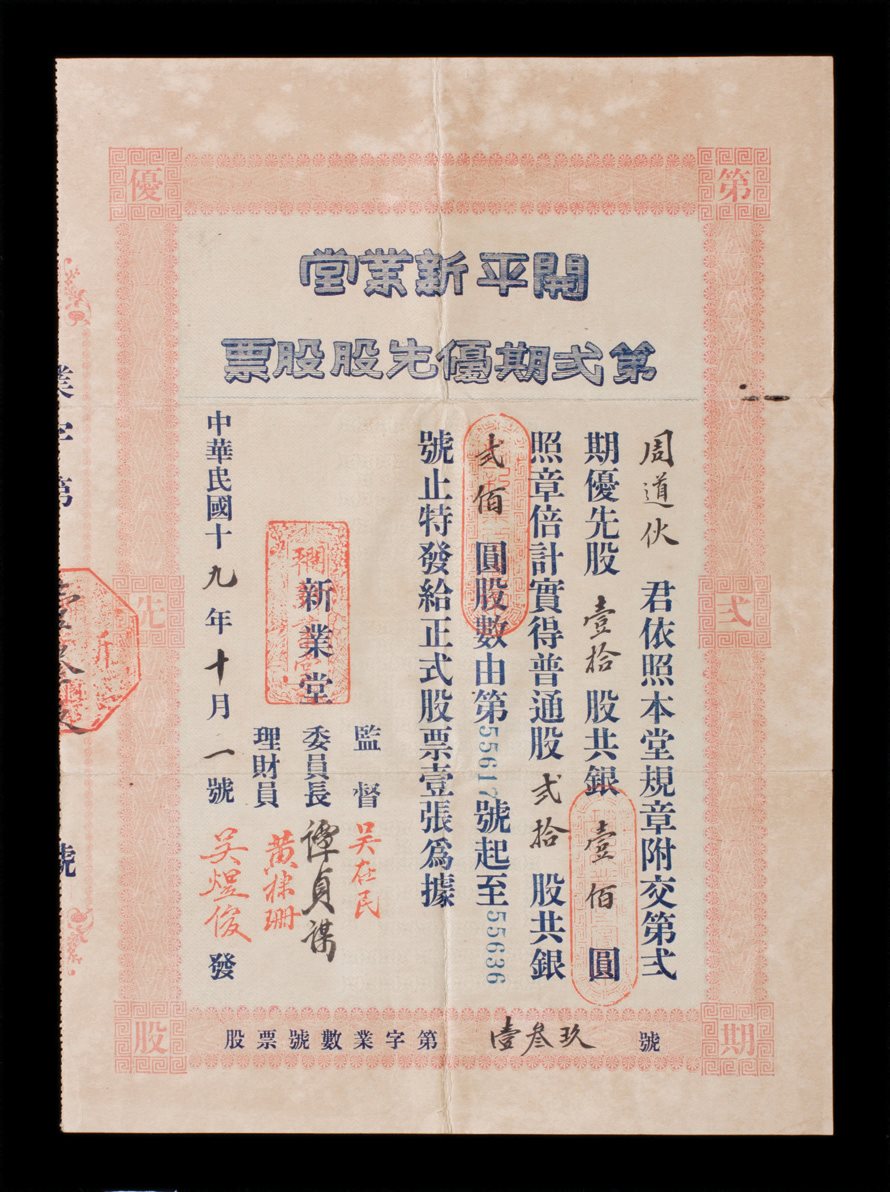 開平新業堂
第弍期優先股股票
周道伙 君依照本堂規章附交第弍
期優先股 壹拾 股共銀 壹佰 圓
照章倍計實得普通股 弍拾 股共銀
弍佰 圓股數由第55617號起至55636
號止特發給正式股票壹張爲據
監督 吳在民
新業堂 委員長 譚貞謀
理財員 黃棣珊
吳煜俊
中華民國十九年十月一號 發
股票號數業字第 壹叁玖 號
第
弍
期
優
先
股
業字第
號